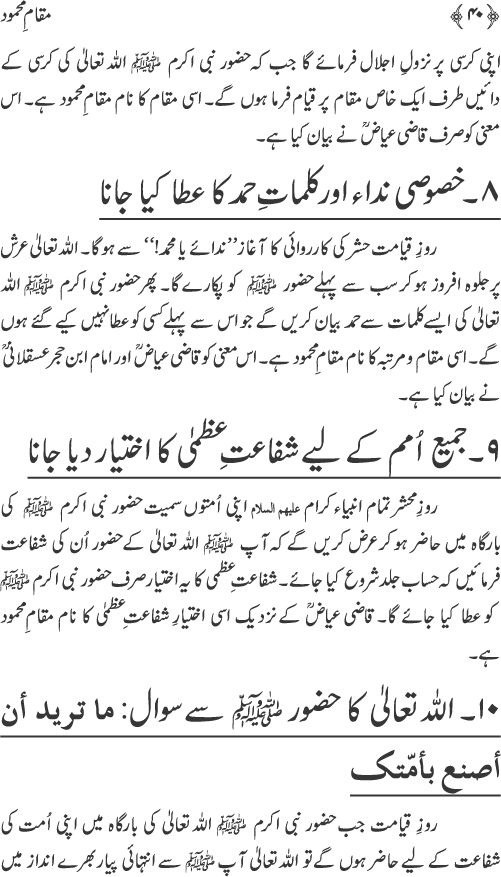 مقامِ محمود ﴿۴۰﴾
اپنی کرسی پر نزولِ اجلال فرمائے گا جب کہ حضور نبی اکرم ﷺ اللہ تعالیٰ کی کرسی کے
دائیں طرف ایک خاص مقام پر قیام فرما ہوں گے۔ اسی مقام کا نام مقامِ محمود ہے۔ اس
معنی کو صرف قاضی عیاضؒ نے بیان کیا ہے۔
۸۔ خصوصی نداء اور کلماتِ حمد کا عطا کیا جانا
روزِ قیامت حشر کی کارروائی کا آغاز ’’ندائے یا محمد!‘‘ سے ہوگا۔ اللہ تعالیٰ عرش
پر جلوہ افروز ہو کر سب سے پہلے حضور ﷺ کو پکارے گا۔ پھر حضور نبی اکرم ﷺ اللہ
تعالیٰ کی ایسے کلمات سے حمد بیان کریں گے جو اس سے پہلے کسی کو عطا نہیں کیے گئے ہوں
گے۔ اسی مقام و مرتبہ کا نام مقامِ محمود ہے۔ اس معنی کو قاضی عیاضؒ اور امام ابن حجر عسقلانیؒ
نے بیان کیا ہے۔
۹۔ جمیع اُمم کے لیے شفاعتِ عظمیٰ کا اختیار دیا جانا
روزِ محشر تمام انبیاء کرام علیہم السلام اپنی اُمتوں سمیت حضور نبی اکرم ﷺ کی
بارگاہ میں حاضر ہو کر عرض کریں گے کہ آپ ﷺ اللہ تعالیٰ کے حضور اُن کی شفاعت
فرمائیں کہ حساب جلد شروع کیا جائے۔ شفاعتِ عظمیٰ کا یہ اختیار صرف حضور نبی اکرم ﷺ
کو عطا کیا جائے گا۔ قاضی عیاضؒ کے نزدیک اسی اختیارِ شفاعتِ عظمیٰ کا نام مقامِ محمود
ہے۔
۱۰۔ اللہ تعالیٰ کا حضور ﷺ سے سوال: ما ترید أن
أصنع بأمّتک
روزِ قیامت جب حضور نبی اکرم ﷺ اللہ تعالیٰ کی بارگاہ میں اپنی اُمت کی
شفاعت کے لیے حاضر ہوں گے تو اللہ تعالیٰ آپ ﷺ سے انتہائی پیار بھرے انداز میں